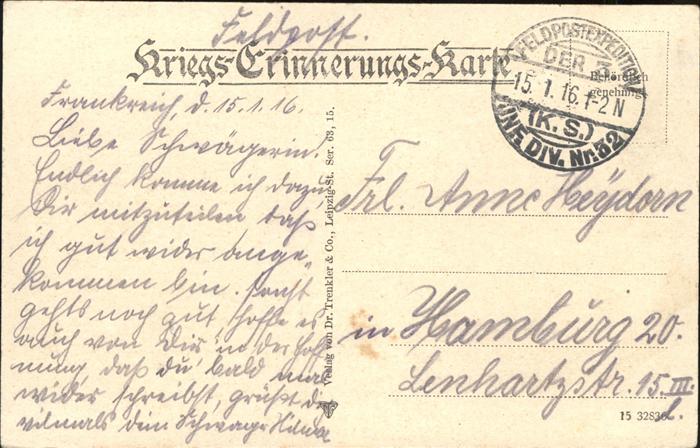 Feldpost.
Kriegs-Erinnerungs-Karte
FELDPOSTEXPEDITION
DER 3.
15.1.16.1-2N
(K.S.)
INF. DIV. Nr. 32
Behördlich
genehmigt
Frankreich, d. 15.1.16.
Liebe Schwägerin!
Endlich komme ich dazu,
Dir mitzuteilen daß
ich gut wider ange-
kommen bin. sonst
gehts noch gut, hoffe es
auch von Dir in der Hoff
nung, daß du bald mal
wider schreibst, grüßt d.
vilmals dein Schwager
Verlag von Dr. Trenkler & Co., Leipzig-St. Ser. 63, 15.
Frl. Anne Heydorn
in Hamburg 20.
Lenhartzstr. 15 III
15 3283